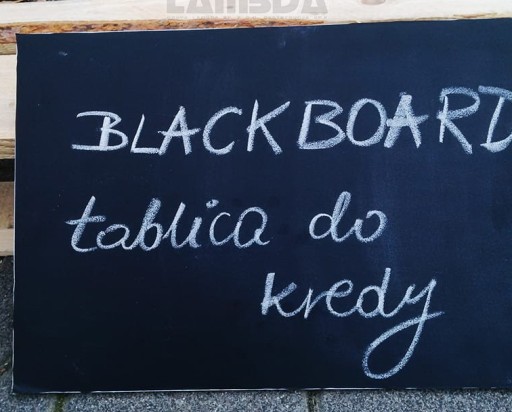 LAMBDA
BLACKBOARD
tablica do
kredy